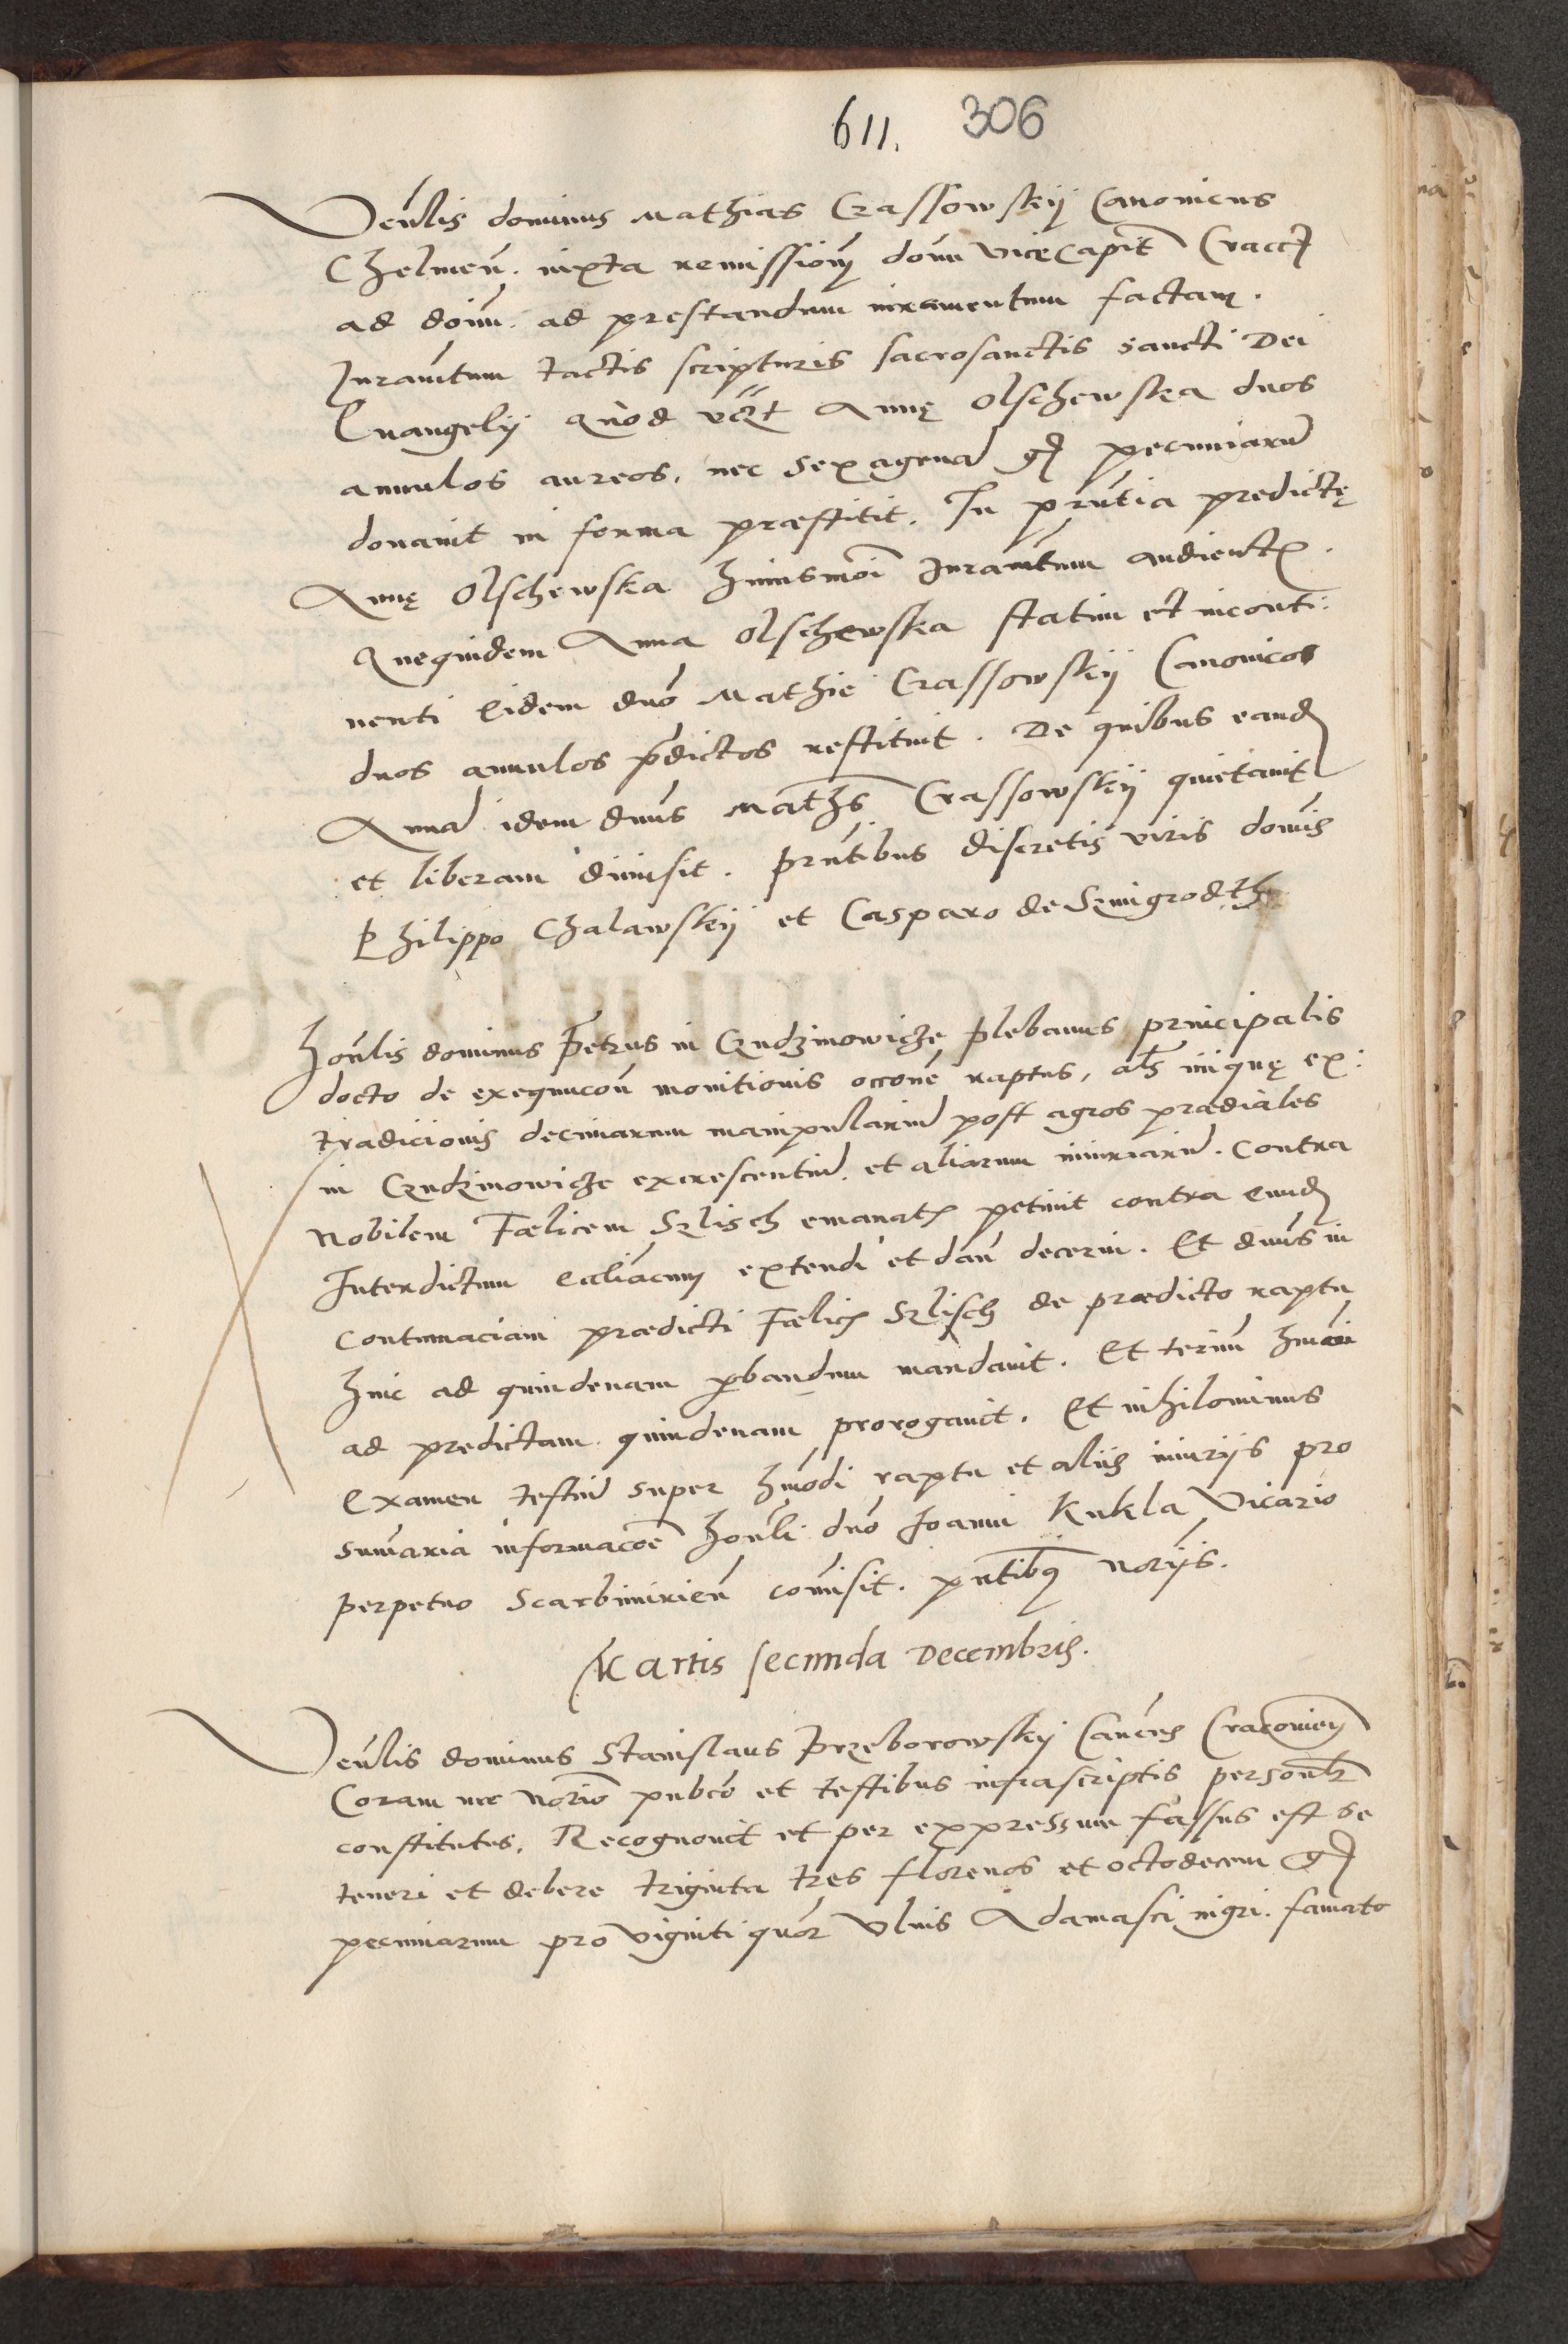 611. 306
Venlis dominus Mathias Crassowskij Canonicus
Chelmen. iuxta remissionem domi vicecapit Cracc
ad domi. ad prestandum iuramentum factam.
Juramtum tactis scripturis sacrosanctis sancti Dei
Euangelij quod Annę Olschewska duos
annulos aureos, nec sexagena gr pecuniaru
donauit in forma præstitit. In prntia predictę
Annę Olschewska huiusmoi Juramtum audient.
Quequidem Anna Olschewska statim et inconti:
nenti eidem dno Mathie Crassowskij Canonico
duos annulos pdictos restituit. De quibus eand
Anna idem dnus Maths Crassowskij quietauit
et liberam dimisit. Prntibus discretis viris domis
Philippo Chalawskij et Casparo de Semigrodth
Honlis dominus Petrus in Czudzinowicze plebanus principalis
docto de exequucon monitionis occone raptus, als iniquę ex:
tradicionis decimarum manipulariu post agros prædiales
in Czudzinowicze excrescentiu. et aliarum iniuriaru. contra
Nobilem Fælicem Szlisch emanat petiuit contra eund
Interdictum extendi et dari decerni. Et dnus in
contumaciam prædicti Fælic Szlisch de prædicto raptu
hinc ad quindenam pbandum mandauit. Et termi hmoi
ad prędictam quindenam prorogauit. Et nihilominus
Examen testiu super hmodi raptu et aliis iniurijs pro
sumaria informacoe honli dno Joanni Kukla Vicario
perpetuo Scarbimirien comisit. pntibus norijs.
Martis secunda Decembris.
Venlis dominus Stanislaus Przeborowskij Cancus Cracouien
Coram me norio pubco et testibus infrascriptis personlr
constitutes. Recognouit et per expressum fassus est se
teneri et debere triginta tres florenos et octodecem gr
pecuniarum pro viginti quor vlnis Adamasci nigri. famato